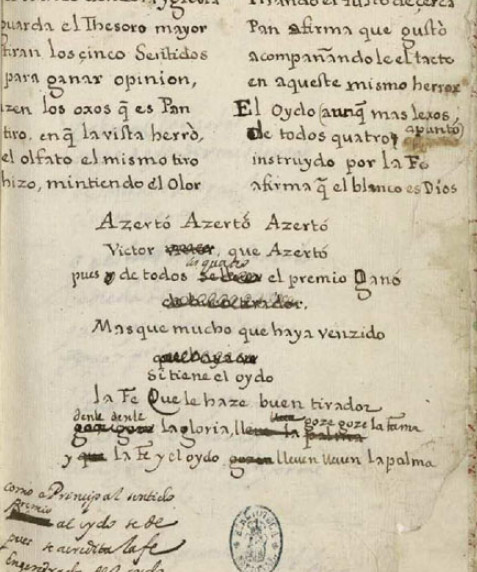 guarda el Thesoro mayor
tiran los cinco Sentidos
para ganar opinion,
los oxos q̃ es Pan
tiro, en q̃ la vista herrò,
el olfato el mismo tiro
hizo, mintiendo el Olor
Pan afirma que gustò
acompañandole el tacto
en aqueste mismo herror
El Oydo (aunq̃ mas lexos,
de todos quatro, apuntó)
instruydo por la Fe
afirma q̃ el blanco es Dios
Azertó Azertó Azertó
Victor, que Azertó
los quatro
pues y de todos el premio Ganó
Mas que mucho que haya venzido
si tiene el oydo
la Fe Que le haze buen tirador
denle denle goze goze la fama
la gloria, lleue la palma
y la Fe y el oydo lleuen lleuen la palma
como a Principal sentido
Premio al oydo se de
pues se acredita la fe